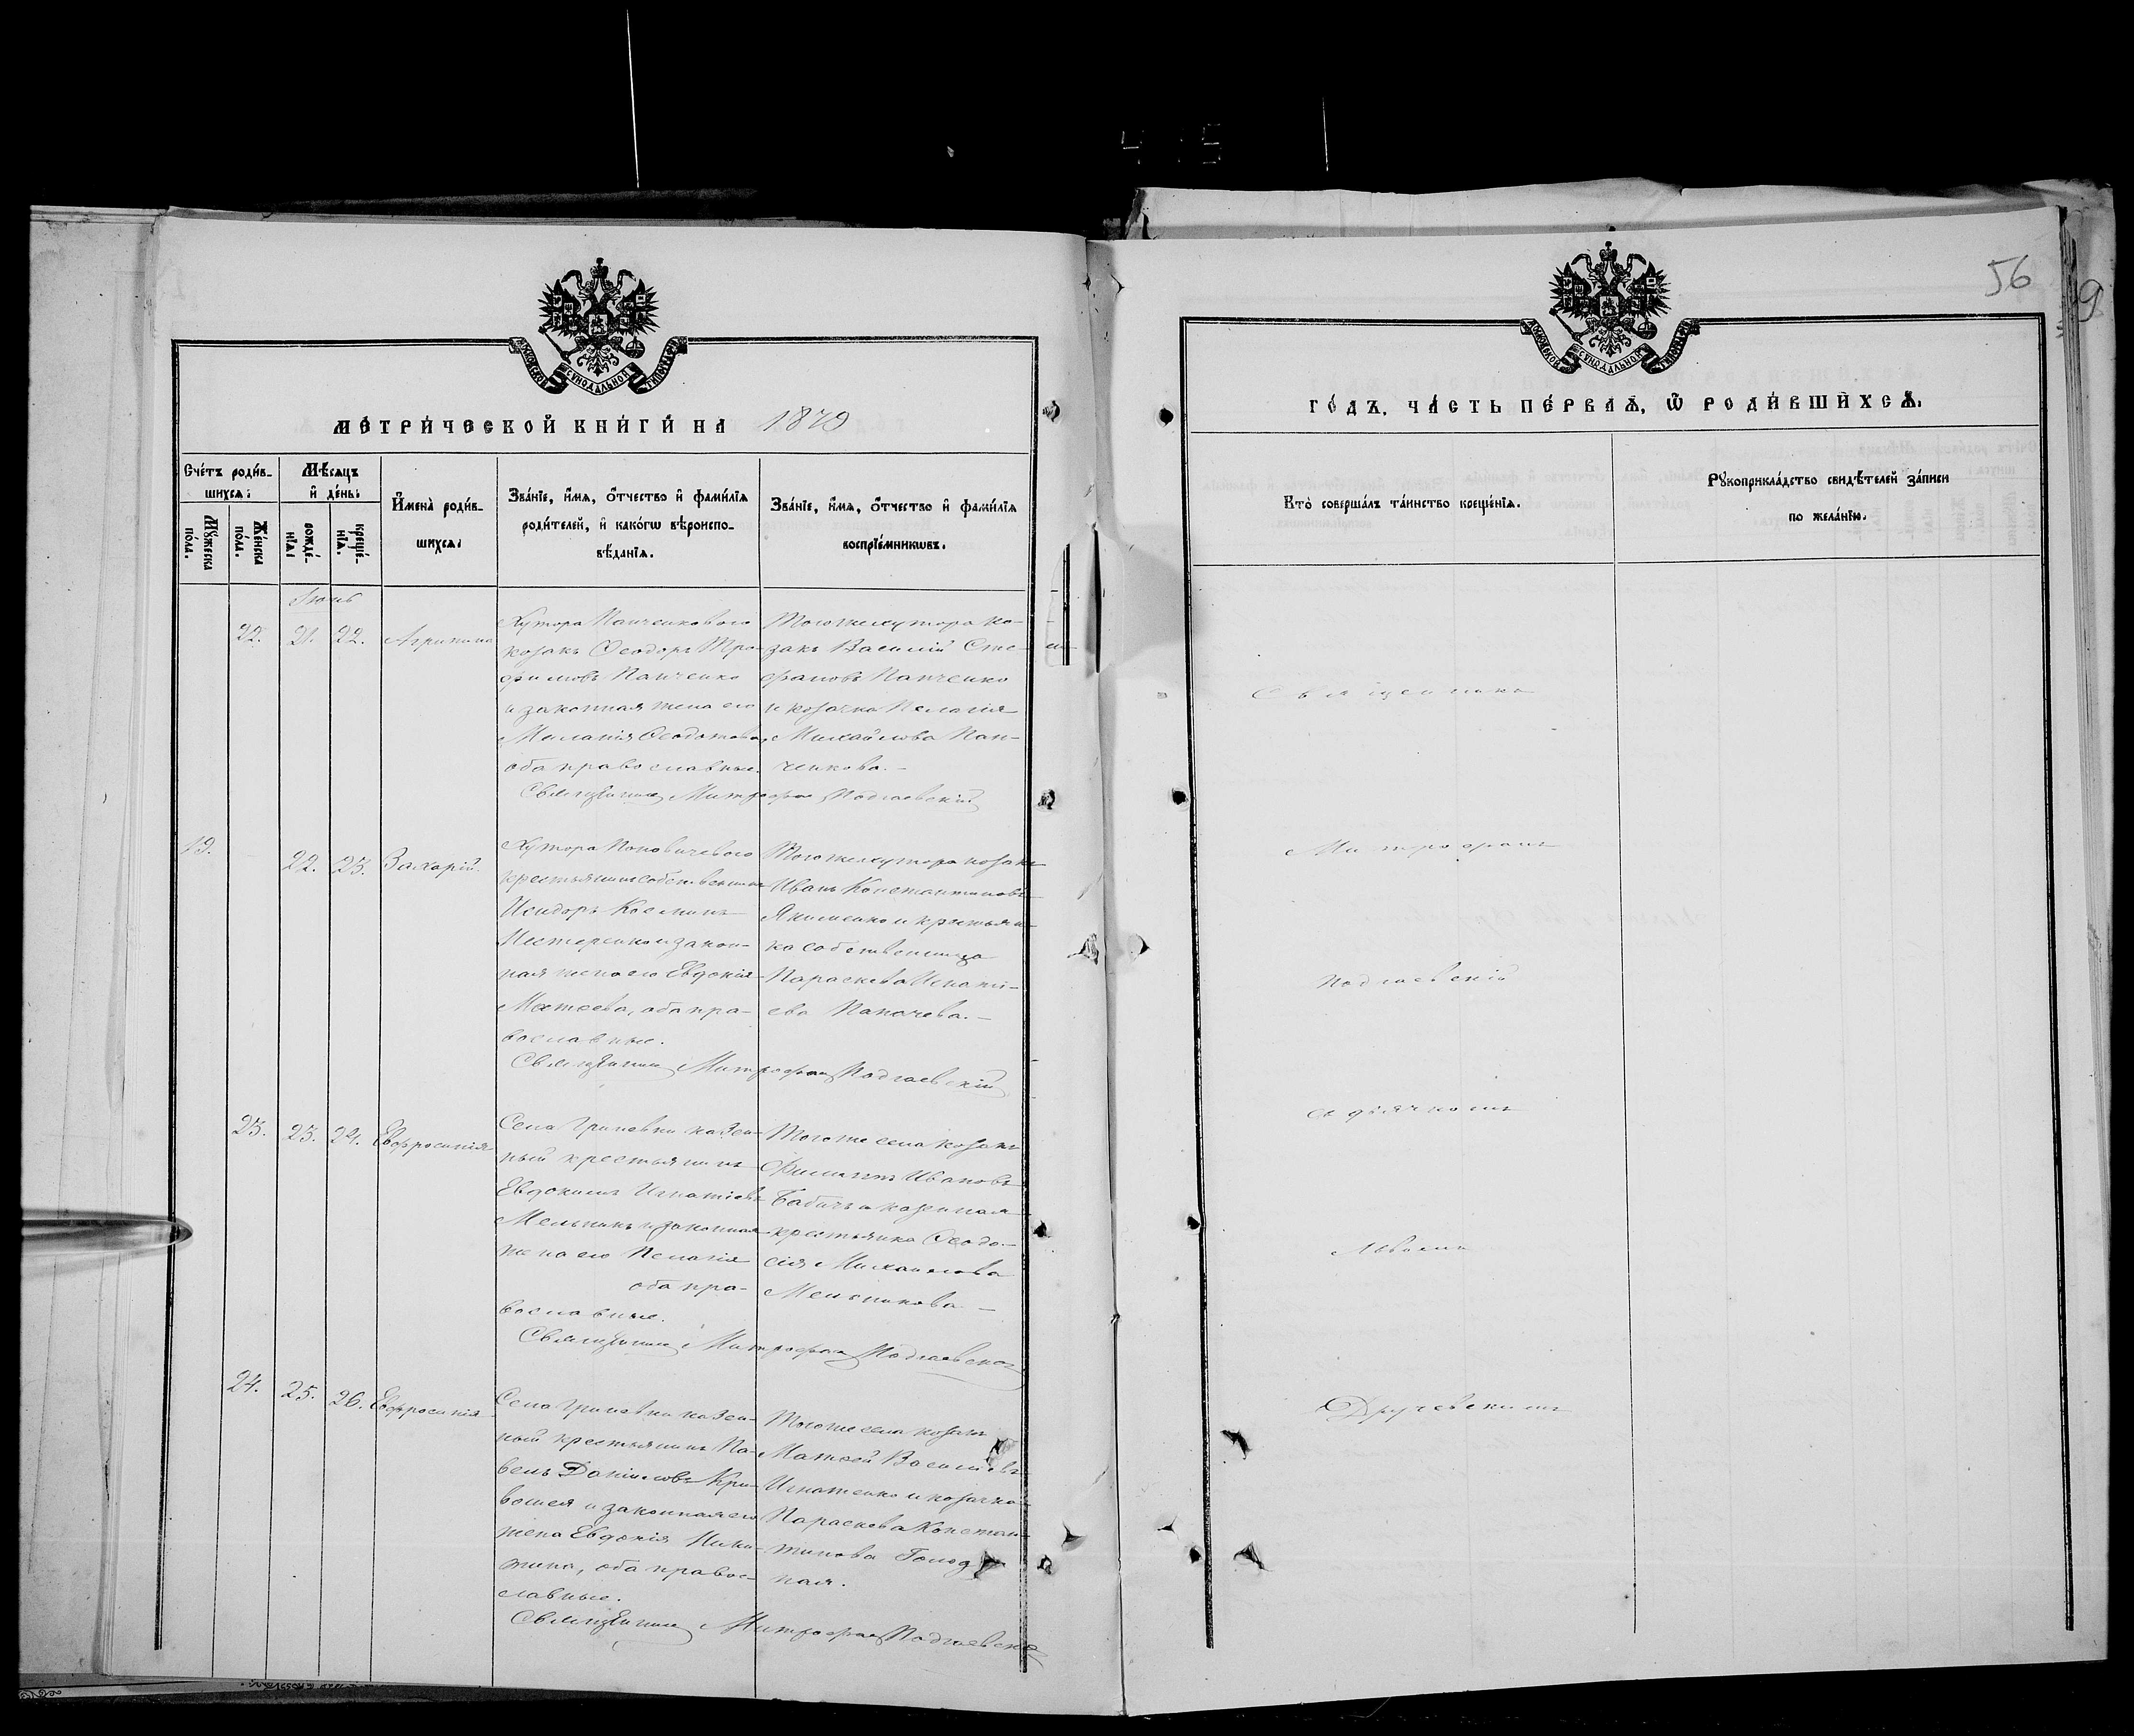 56
9
МЕТРИ́ЧЕСКОЙ КНИ́ГИ НА 1879
ГО́ДЪ, ЧА́СТЬ ПЕ́РВАѦ, Ѽ РОДИ́ВШИХСѦ.
Сче́тъ роди́в-
шихсѧ:
Мꙋ́жеска
по́ла.
Же́нска
по́ла.
Мѣ́сѧцъ
и҆ де́нь:
рожде́-
нїѧ:
креще́-
нїѧ.
И҆мена̀ роди́в-
шихсѧ:
Зва́нїе, и҆́мѧ, ѻ҆́тчество и҆ фами́лїѧ
роди́телей, и҆ како́гѡ вѣроиспо-
вѣ́данїѧ.
Зва́нїе, и҆́мѧ, ѻ҆́тчество и҆ фами́лїѧ
воспрїе́мникѡвъ.
Кто̀ соверша́лъ та́инство креще́нїѧ.
Рꙋкоприкла́дство свидѣ́телей за́писи
по жела́нїю.
Іюнь
22. 21. 22. Агрипина
Хутора Панченкового
козакъ Ѳеодоръ Тро-
фимовъ Панченко
и законная жена его
Маланія Ѳеодотова,
оба православные.
Тогоже хутора ко-
закъ Василій Сте-
фановъ Панченко
и козачка Пелагія
Михайлова Пан-
ченкова.—
Священникъ Митрофанъ Подгаевскій
19. 22. 23. Захарій.
Хутора Поповичевого
крестьянинъ собственникъ
Исидоръ Косминъ
Нестеренко и закон-
ная жена его Евдокія
Матѳеева, оба пра-
вославные.
Тогоже хутора козакъ
Иванъ Константиновъ
Якименко и крестьян-
ка собственница
Параскева Игнаті-
ева
Священникъ Митрофанъ Подгаевскій
23. 23. 24. Евфросинія
Села Гриневки казен-
ный крестьянинъ
Евдокимъ Игнатіевъ
Мельникъ и законная
жена его Пелагія
оба пра-
вославные.
Тогоже села козакъ
Филиппъ Ивановъ
Бабичъ и казенная
крестьянка Ѳеодо-
сія Михайлова
Мельникова.—
Священникъ Митрофанъ Подгаевскій
24. 25. 26. Евфросинія
Села Гриневки казен-
ный крестьянинъ Па-
велъ Даніиловъ Кри-
вошея и законная его
жена Евдокія Ники-
тина, оба правос-
лавные.
Тогоже села козакъ
Матѳей Василіевъ
Игнатенко и козачка
Параскева Констан-
тинова
ная.
Священникъ Митрофанъ Подгаевскій
Священникъ
Митрофанъ
Подгаевскій
съ дьячкомъ